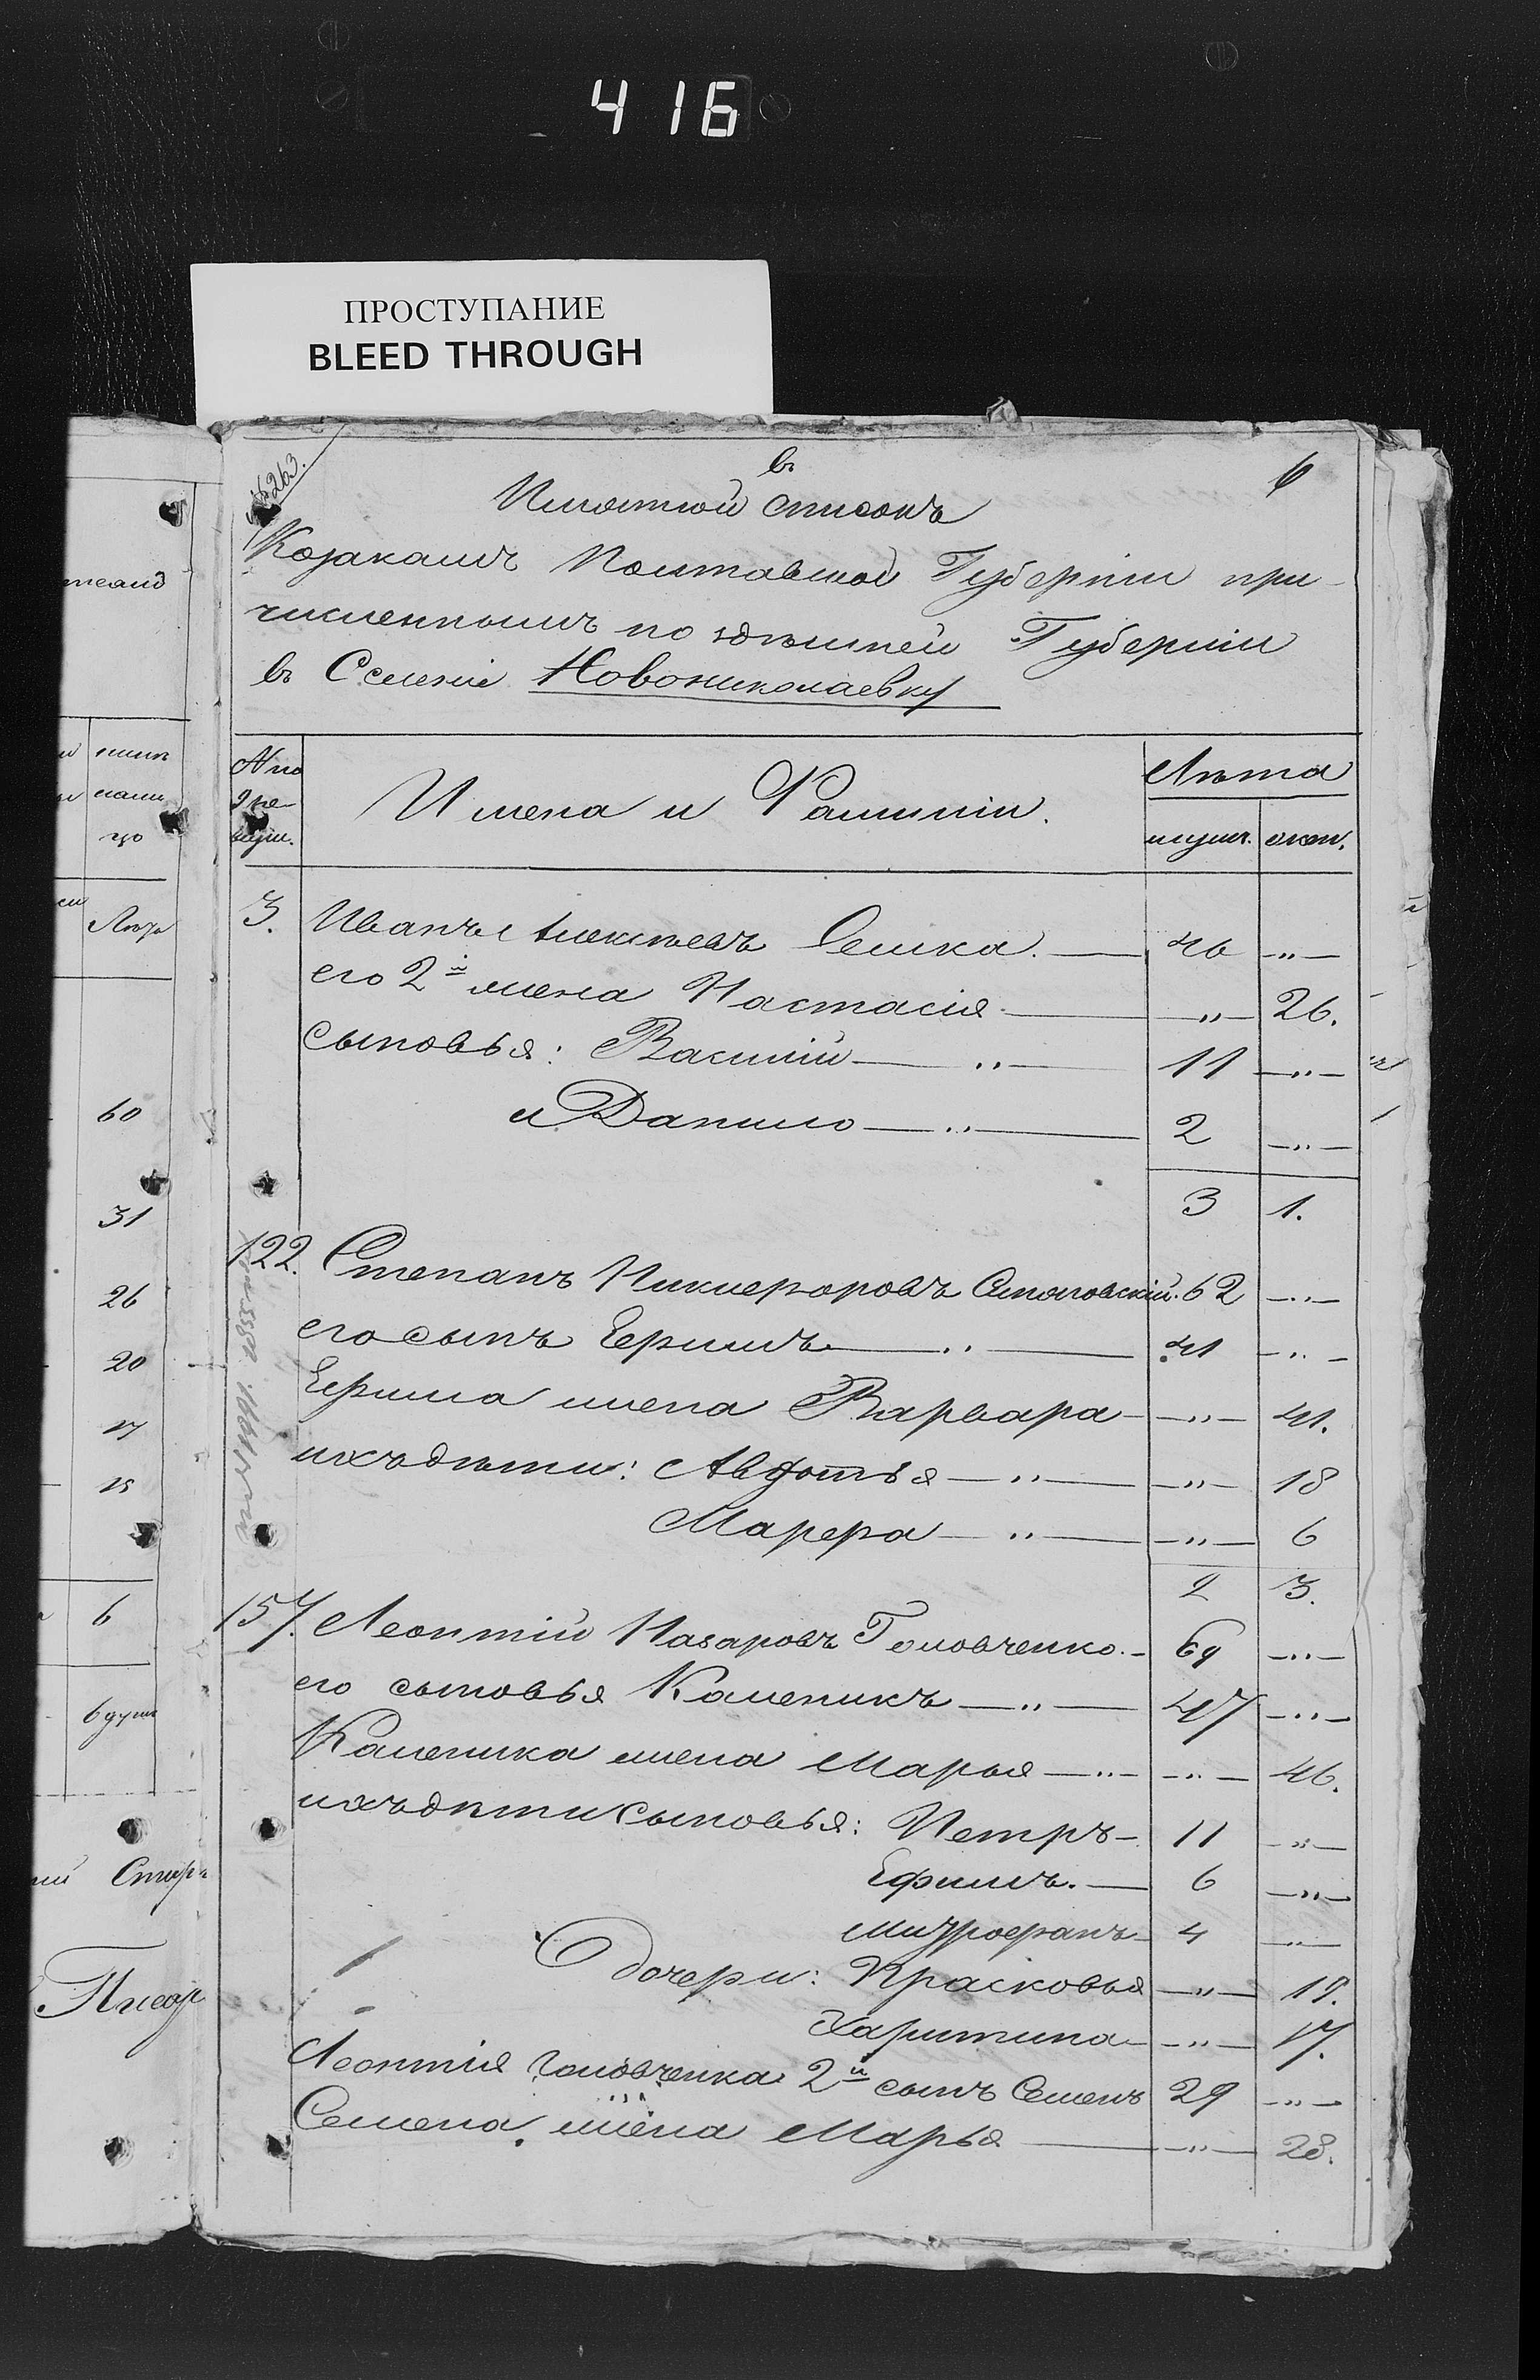 416
ПРОСТУПАНИЕ
BLEED THROUGH
№ 263.
6
Въ
Имянной списокъ
Козакамъ Полтавской Губерніи при-
численнымъ по здѣшней Губерніи
въ Селеніе Новониколаевку
№ по
9 ре-
визіи.
Имена и Фамиліи.
Лѣта
мужс. женс.
3. Иванъ Алексѣевъ Сешка. — 46 — " —
его 2й жена Настасія — " — 26.
сыновья: Василій — " — 11 — " —
и Данило — " — 2 — " —
3 1.
122. Степанъ Никифоровъ Стоговскій. 62 — " —
его сынъ Ефимъ — " — 41 — " —
Ефима жена Варвара — " — 41.
ихъ дѣти: Авдотья — " — " — 18
Марфа — " — " — 6
2 3.
157. Леонтій Назаровъ Головченко. — 69 — " —
его сыновья Каленикъ — " — 47 — " —
Каленика жена Марья — " — " — 46.
ихъ дѣти сыновья: Петръ — 11 — " —
Ефимъ. — 6 — " —
Митрофанъ — 4 — " —
дочери: Прасковья — " — 19.
Харитина — " — 17.
Леонтія Головченка 2й сынъ Семенъ 29 — " —
Семена жена Марья — " — 28.
60
31
26
20
17
15
6
6 душ
Писар